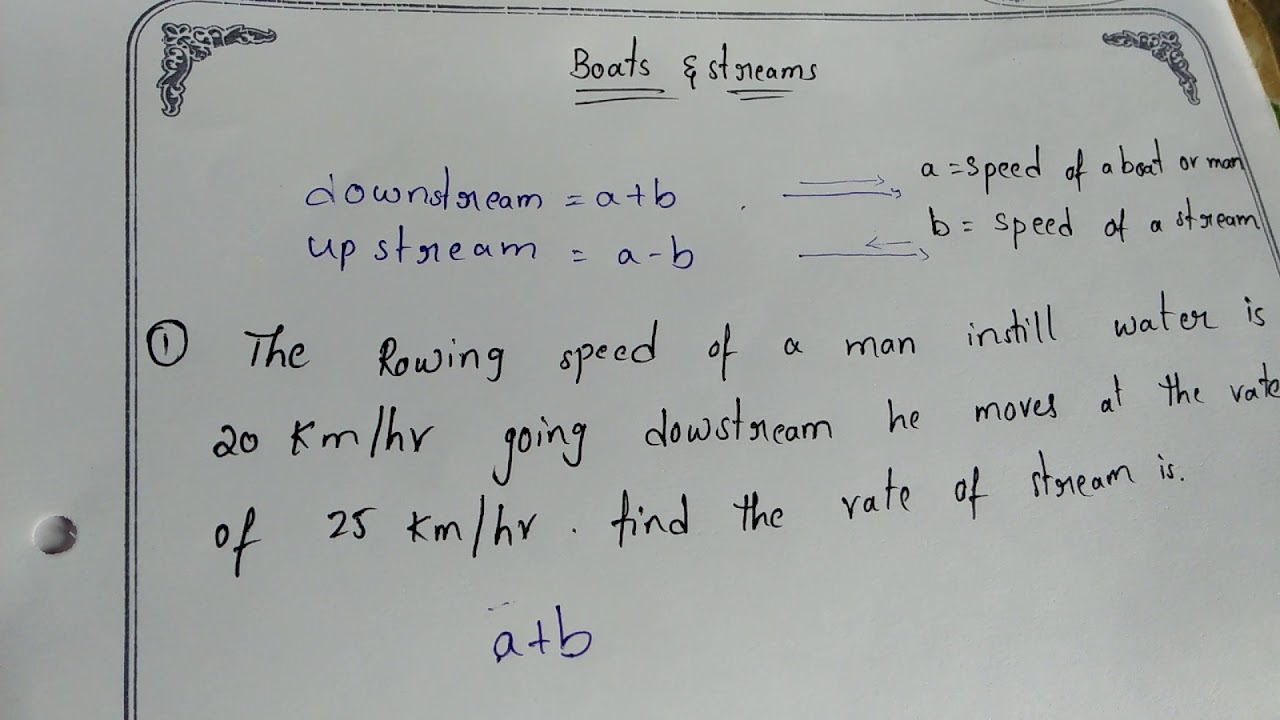 Boats & streams
downstream = a+b
a = speed of a boat or man
upstream = a-b
b = speed of a stream
① The Rowing speed of a man instill water is
20 Km/hr going dowstream he moves at the rate
of 25 Km/hr. find the rate of stream is.
a+b